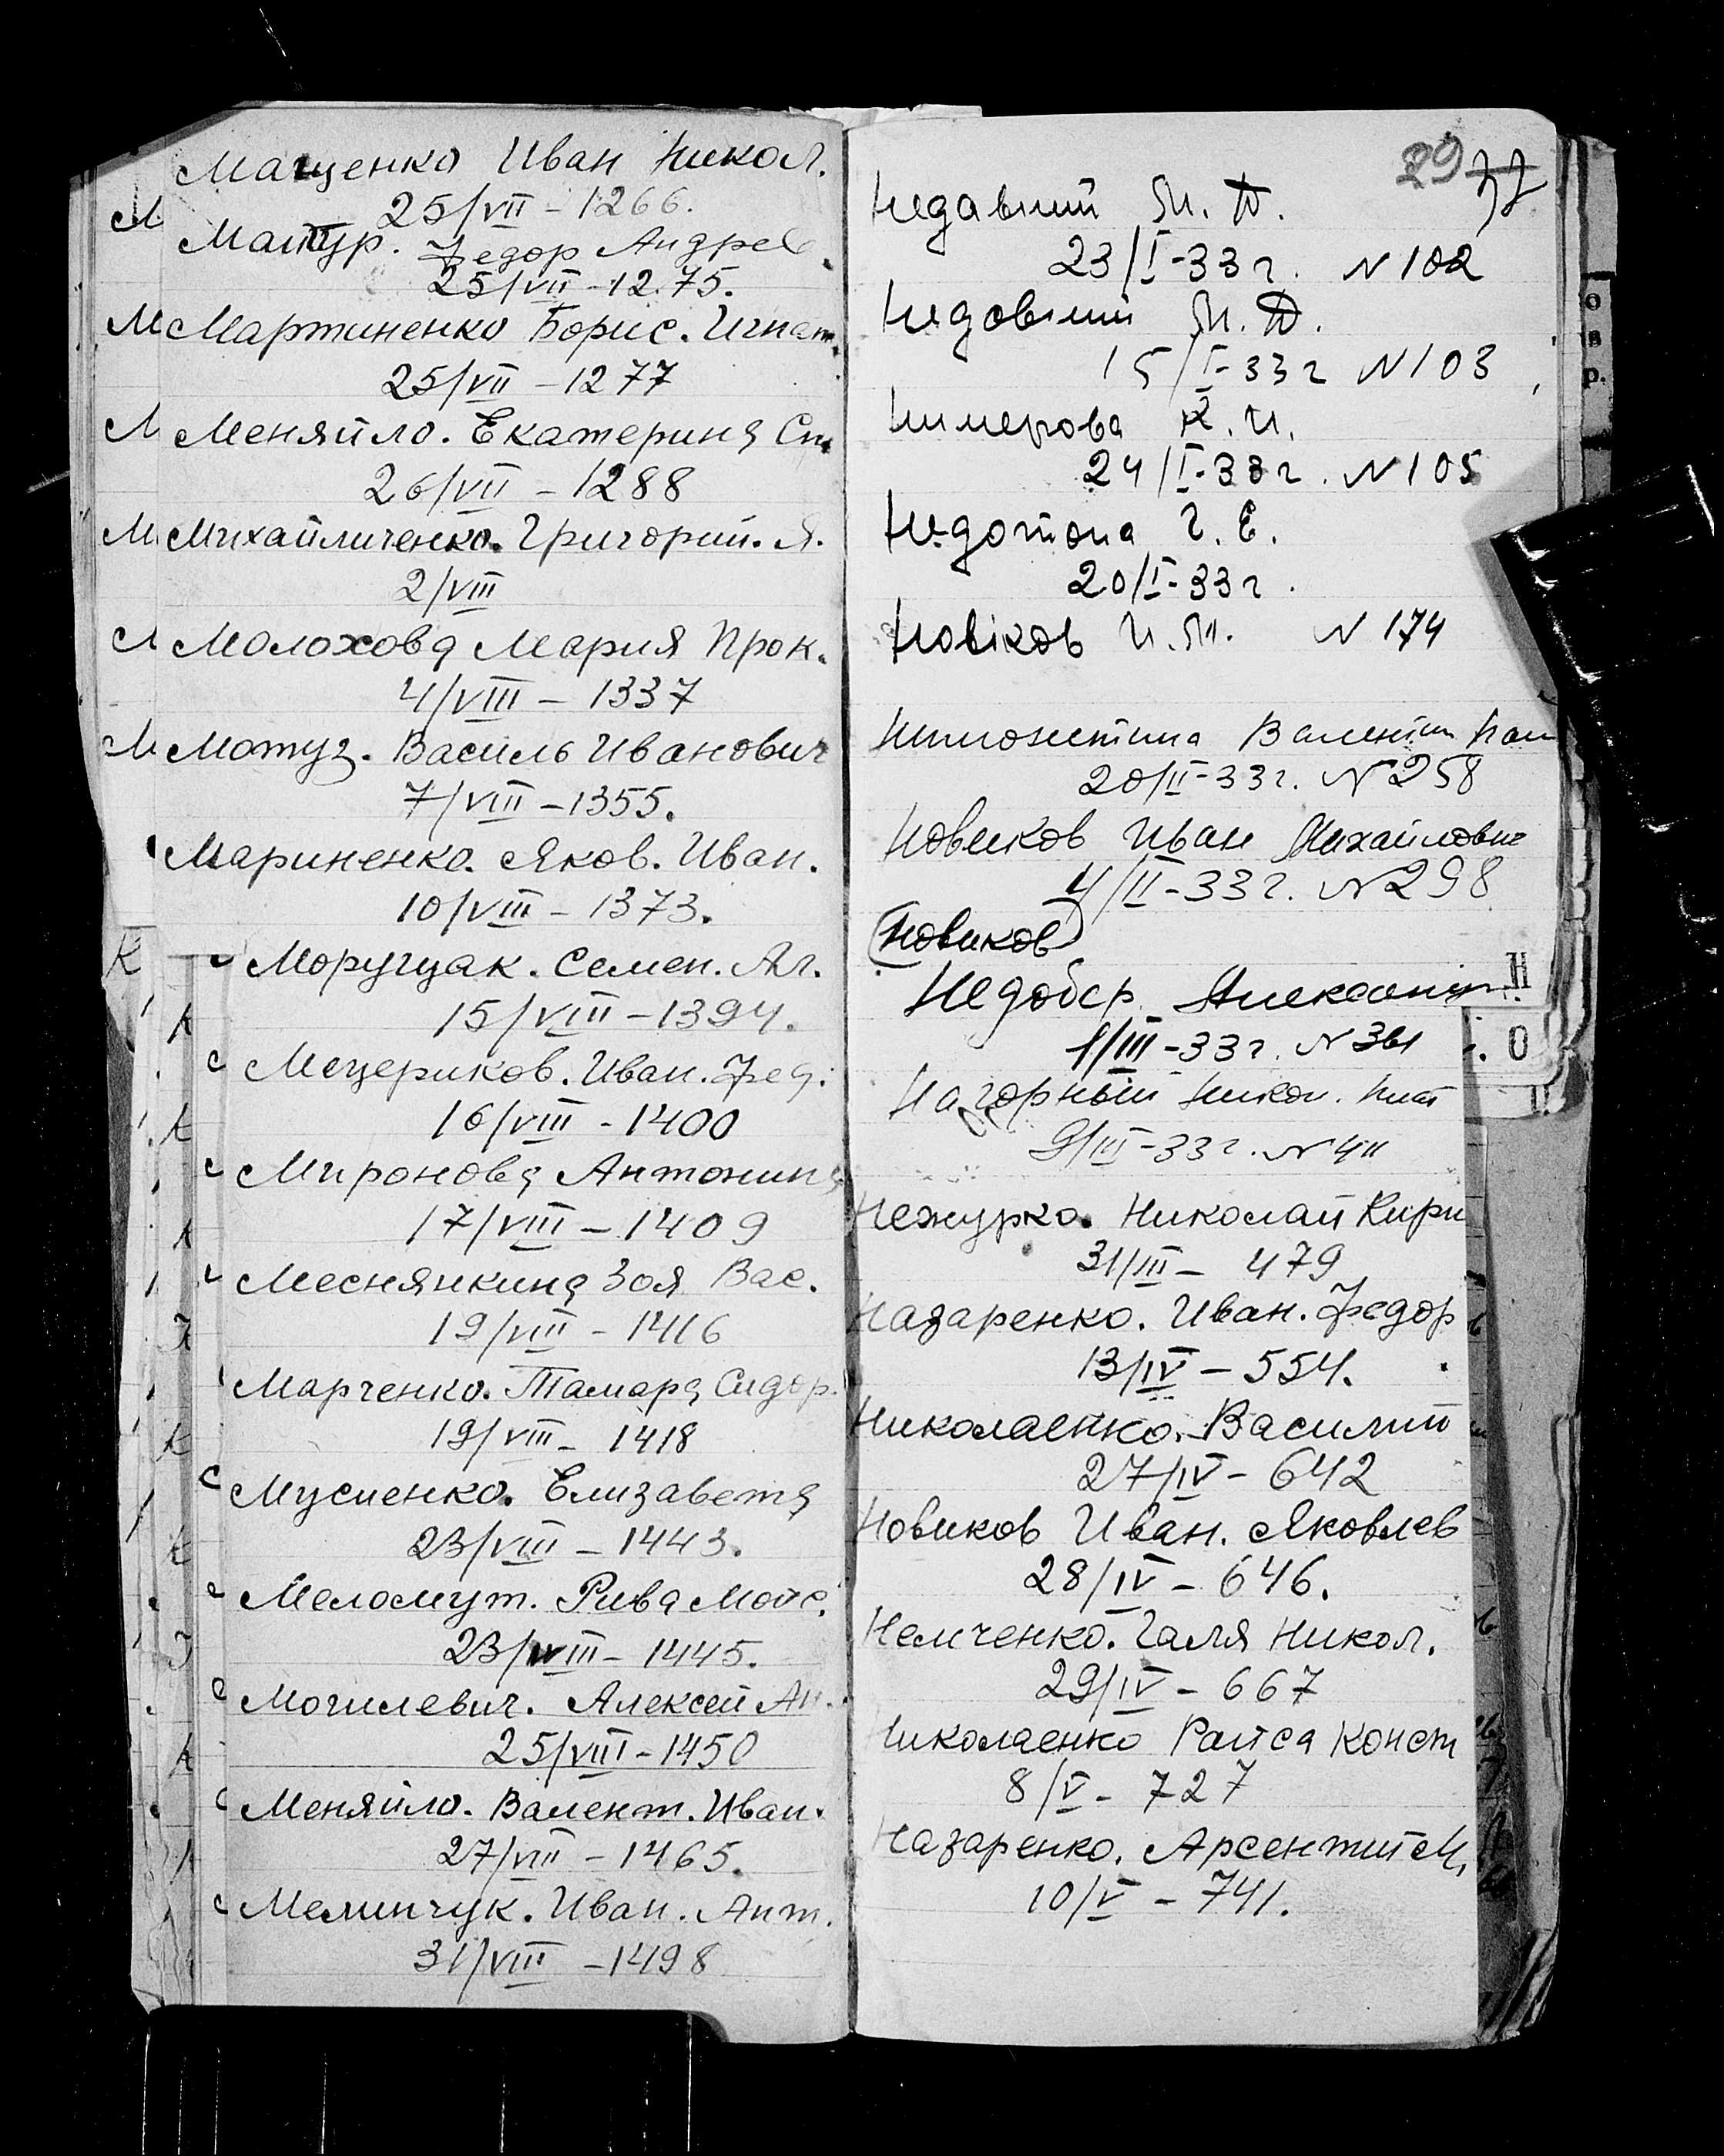 Мащенко Иван Никол.
25/VII - 1266.
Мантур. Федор Андрее
25/VII - 1275.
Мартиненко Борис. Игнат.
25/VII - 1277
Меняйло. Екатерина Сп.
26/VII - 1288
Михайличенко. Григорий. Я.
2/VIII
Молохова Мария Прок.
4/VIII - 1337
Мотуз. Василь Иванович
7/VIII - 1355.
Мариненко. Яков. Иван.
10/VIII - 1373.
Моругцак. Семен. Аг.
15/VIII - 1394.
Мещериков. Иван. Фед.
16/VIII - 1400
Миронова Антонина
17/VIII - 1409
Меснянкина Зоя Вас.
19/VIII - 1416
Марченко. Тамара Сидор.
19/VIII - 1418
Мусиенко. Елизавета
23/VIII - 1443.
Меломут. Рива Мойс.
23/VIII - 1445.
Могилевич. Алексей Ан.
25/VIII - 1450
Меняйло. Валент. Иван.
27/VIII - 1465.
Мелничук. Иван. Ант.
31/VIII - 1498
29 37
Недавний М. Д.
23/I-33 г. N 102
Недовний М. Д.
15/I-33 г N 103
Нимерова К. И.
24/I-33 г. N 105
Недотопа Г. Е.
20/I-33 г.
Новіков И. М. N 174
Валентин
20/II-33 г. N 258
Новиков Иван Михайлович
4/II-33 г. N 298
Новиков
Недобер Александр.
1/III-33 г. N 361
Нагорный Никол.
9/III-33 г. N 411
Нежурко. Николай Кири
31/III - 479
Назаренко. Иван. Федор
13/IV - 554.
Николаенко. Василий
27/IV - 642
Новиков Иван. Яковлев
28/IV - 646.
Немченко. Галя Никол.
29/IV - 667
Николаенко Раиса Конст
8/V - 727
Назаренко. Арсентий М.
10/V - 741.
Н
О